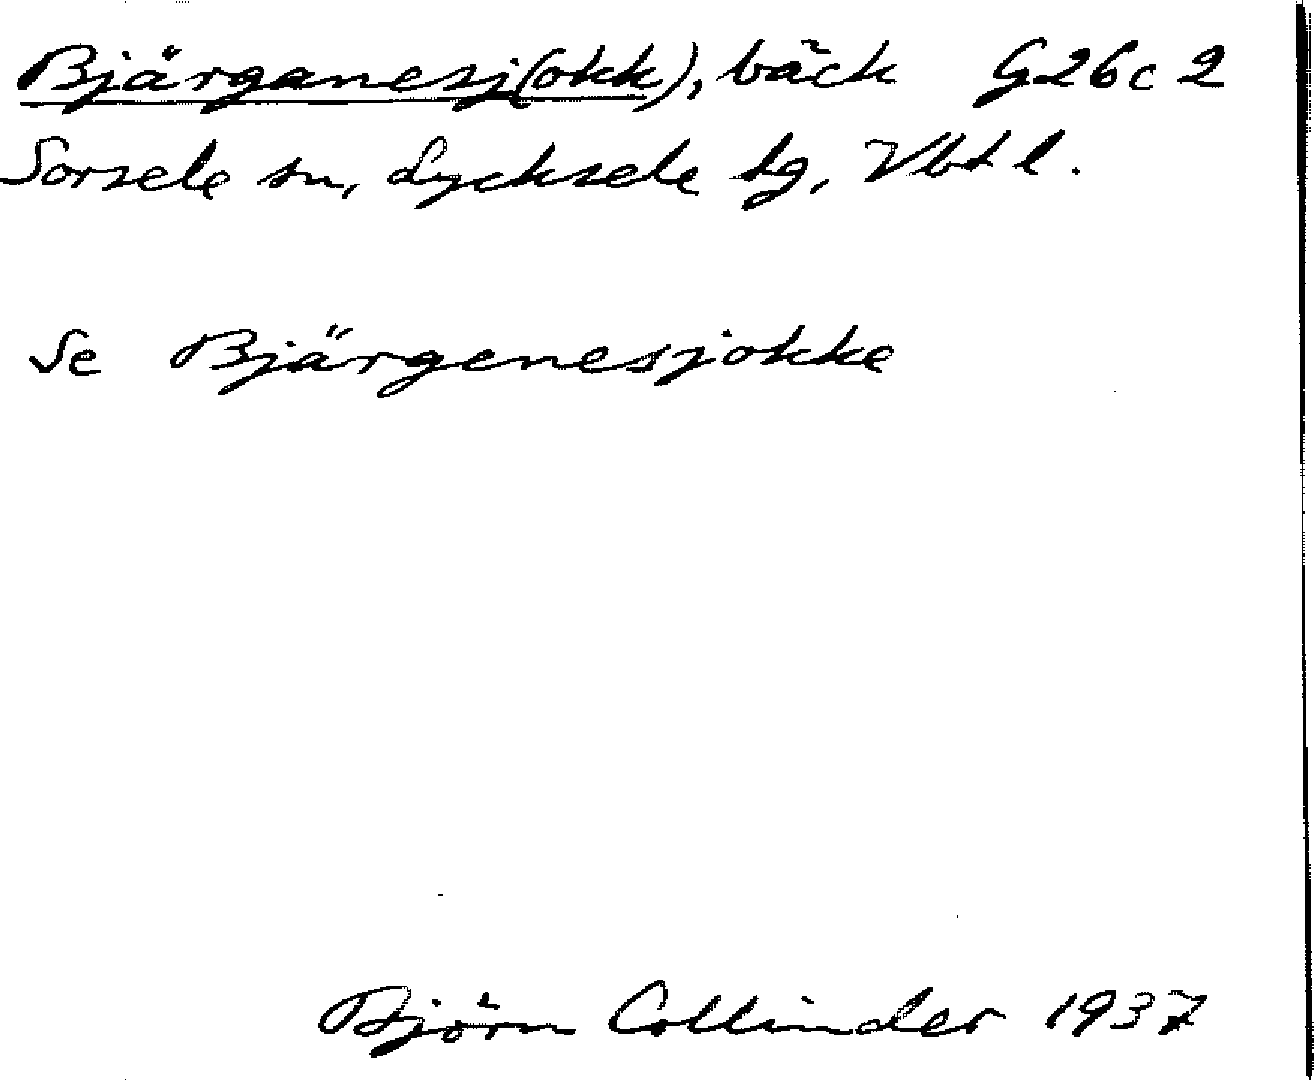 Bjärganesj(okk), bäck G26c2
Sorsele sn, Lycksele lg, Vbtl.
Se Bjärgenesjokke
Björn Collinder 1937